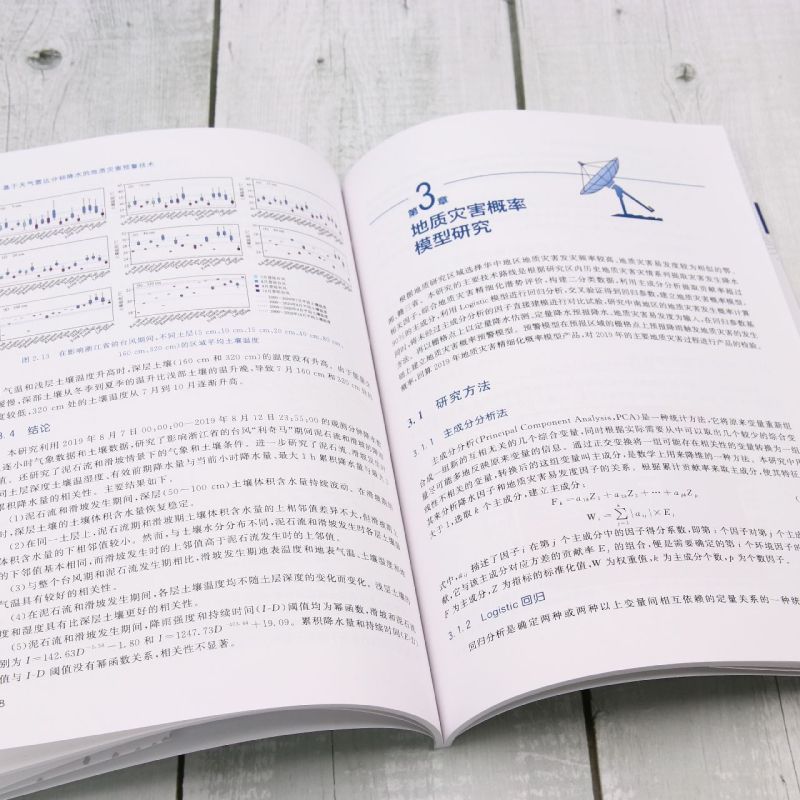 基于天气雷达分钟降水的地质灾害预警技术
图 2.13 在影响浙江省的台风期间,不同土层(5 cm,10 cm,15 cm,20 cm,40 cm,80 cm,
160 cm,320 cm)的区域平均土壤温度
气温和浅层土壤温度升高时,深层土壤(160 cm 和 320 cm)的温度没有升高。由于
缓慢,深部土壤从冬季到夏季的温升比浅部土壤的温升晚,导致 7 月 160 cm 和 320 cm 处的
度较低,320 cm 处的土壤温度从 7 月到 10 月逐渐升高。
3.4 结论
本研究利用 2019 年 8 月 7 日 00:00:00—2019 年 8 月 12 日 23:55:00 的观测分钟降水数
逐小时气象数据和土壤数据,研究了影响浙江省的台风“利奇马”期间泥石流和滑坡的降雨
值。还研究了泥石流和滑坡情景下的气象和土壤条件。进一步研究了泥石流、滑坡及不
同土层深度土壤温湿度、有效前期降水量与当前小时降水量、最大 1 h 累积降水量与最大 3
累积降水量的相关性。主要结果如下。
(1)泥石流和滑坡发生期间,深层(50~100 cm)土壤体积含水量持续波动。在滑坡
时,深层土壤的土壤体积含水量恢复稳定。
(2)在同一土层上,泥石流期和滑坡期土壤体积含水量的上相邻值差异不大,但滑坡
体积含水量的下相邻值较小。然而,与土壤水分分布不同,泥石流和滑坡发生时各层土壤温
的下邻值基本相同,而滑坡发生时的上邻值高于泥石流发生时的上邻值。
(3)与整个台风期和泥石流发生期相比,滑坡发生期地表温度和地表气温、土壤湿度和
气温具有较好的相关性。
(4)在泥石流和滑坡发生期间,各层土壤温度均不随土层深度的变化而变化。浅层土壤
度和湿度具有比深层土壤更好的相关性。
(5)泥石流和滑坡发生期间,降雨强度和持续时间(I-D)阈值均为幂函数,滑坡和泥石流
别为 I=142.63D − 1.80 和 I=1247.73D + 19.09。累积降水量和持续时间(E-D)
值与 I-D 阈值没有幂函数关系,相关性不显著。
8
第3章
地质灾害概率
模型研究
根据地质研究区域选择华中地区地质灾害发灾频率较高、地质灾害易发度较为相似的鄂、
湘、赣、本研究的主要技术路线是根据研究区内历史地质灾害灾情系列提取灾害发生降水
相关因子,综合地质灾害精细化潜势评价,构建二分类数据,利用主成分分析提取贡献率超过
的主成分,利用 Logistic 模型进行回归分析,交叉验证得到回归参数,建立地质灾害概率模型。
同时,将未经过主成分分析的因子直接建模进行对比试验,研究中南地区的地质灾害发生概率计算
方法。再以栅格点上以定量降水估测、定量降水预报降水、地质灾害易发度为输入,在回归参数基
础上建立地质灾害概率预警模型。预警模型在预报区域的栅格点上预报降雨触发地质灾害的发生
概率,回算 2019 年地质灾害精细化概率模型产品,对 2019 年的主要地质灾害过程进行产品的检验。
3.1 研究方法
3.1.1 主成分分析法
主成分分析(Principal Component Analysis,PCA)是一种统计方法,它将原来变量重新组
合成一组新的互相无关的几个综合变量,同时根据实际需要从中可以取出几个较少的综合变
量尽可能多地反映原来变量的信息。通过正交变换将一组可能存在相关性的变量转换为一组
线性不相关的变量,转换后的这组变量叫主成分,是数学上用来降维的一种方法。本研究中用
其来分析降水因子和地质灾害易发度因子的关系。根据累计贡献率来取主成分,使其特征
大于 1,选取 k 个主成分,建立主成分:
式中,aij 描述了因子 i 在第 j 个主成分中的因子得分系数,即第 i 个因子对第 j 个主成
献,它与该主成分对应方差的贡献率 Ej 的组合,便是需要确定的第 i 个环境因子的
F 为主成分,Z 为指标的标准化值,W 为权重值,k 为主成分个数,p 为个数因子。
3.1.2 Logistic 回归
回归分析是确定两种或两种以上变量间相互依赖的定量关系的一种统